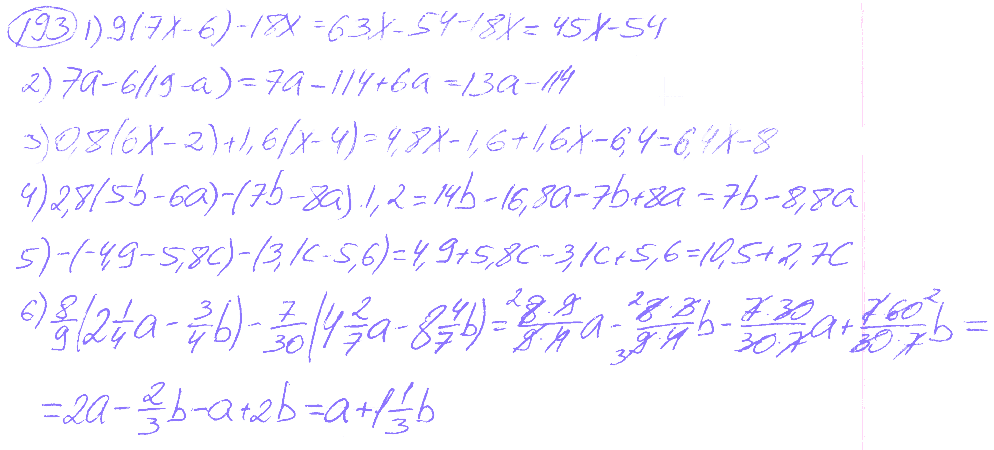 193 1) 9(7x-6)-18x=63x-54-18x=45x-54
2) 7a-6(19-a)=7a-114+6a=13a-114
3) 0,8(6x-2)+1,6(x-4)=4,8x-1,6+1,6x-6,4=6,4x-8
4) 2,8(5b-6a)-(7b-8a)·1,2=14b-16,8a-7b+8a=7b-8,8a
5) -(-4,9-5,8c)-(3,1c-5,6)=4,9+5,8c-3,1c+5,6=10,5+2,7c
6) 8/9(2 1/4a-3/4b)-7/30(4 2/7a-8 4/7b)=(²8·9)/(9·4)a-(²8·3)/(₃9·4)b-(7·30)/(30·7)a+(7·60²)/(30·7)b=
=2a-2/3b-a+2b=a+1 1/3b